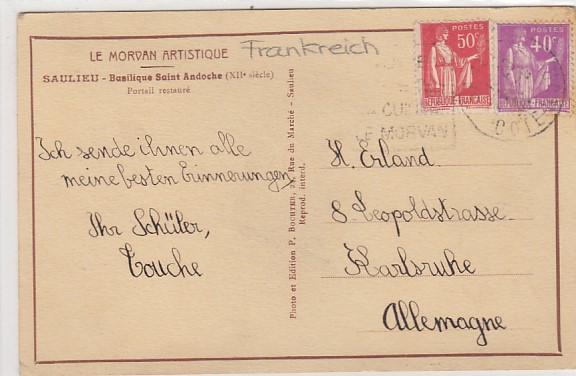 LE MORVAN ARTISTIQUE
Frankreich
SAULIEU - Basilique Saint Andoche (XIIe siècle)
Portail restauré
POSTES
50c
RÉPUBLIQUE-FRANÇAISE
POSTES
40c
RÉPUBLIQUE-FRANÇAISE
LE MORVAN
COTE
Ich sende ihnen alle
meine besten Erinnerungen
Ihr Schüler,
Touche
Photo et Edition P. BOCHTER, Rue du Marché - Saulieu
Reprod. interd.
H. Erland
8 Leopoldstrasse
Karlsruhe
Allemagne